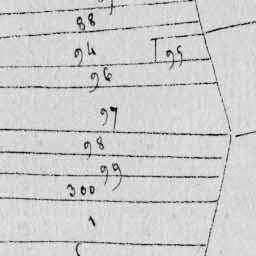 88
94
T 95
96
97
98
99
300
1